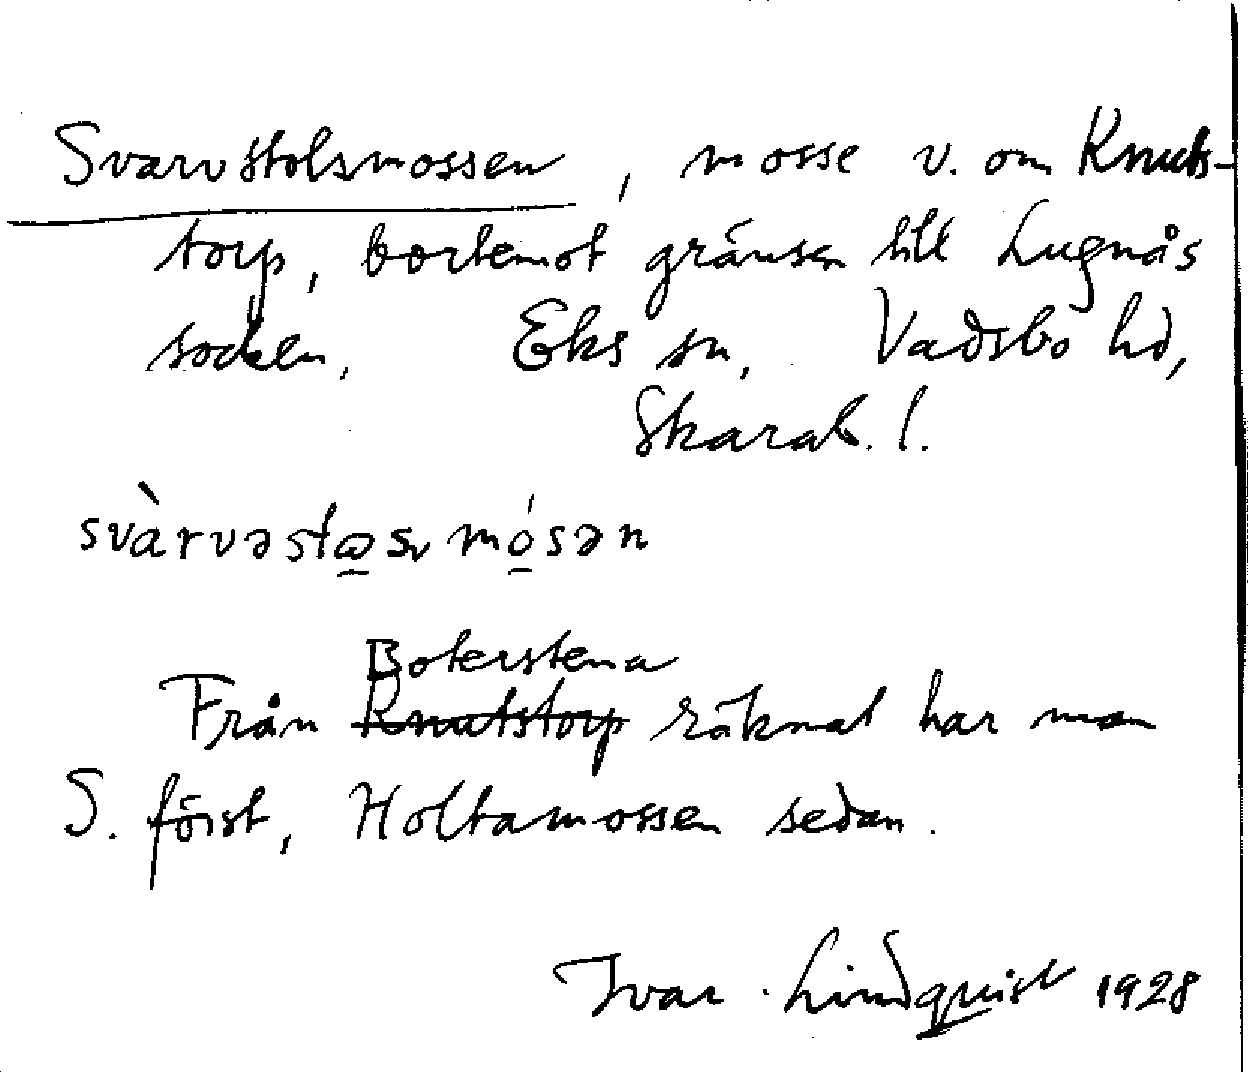 Svarvstolsmossen, mosse v. om Knuts-
torp, bortemot gränsen till Lugnås
socken, Eks sn, Vadsbo hd,
Skarab. l.
svàrvəstωsv mósən
Boterstena
Från Knutstorp räknat har man
S. först, Holtamossen sedan.
Ivar Lindquist 1928